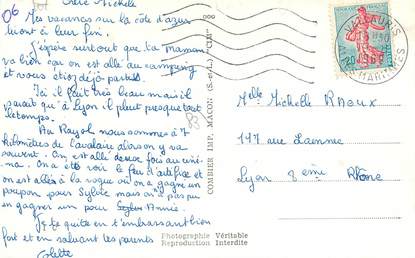 06
Chère Michelle
Mes vacances sur la côte d'azur
vont à leur fin.
J'espère surtout que la maman
va bien car on est allé au camping
et vous étiez déjà partis.
Ici il fait très beau mais il
parait qu'à Lyon il pleut presque tout
le temps.
Au Rayol nous sommes à 7
kilomètres de Cavalaire alors on y va
souvent. On est allé deux fois au ciné-
ma. On a été voir le feu d'artifice et
on est allés à la vogue où on a gagné un
poupon pour Sylvie mais on n'a pas pu
en gagner un pour Annie.
Je te quitte en t'embrassant bien
fort et en saluant tes parents
Colette
COMBIER IMP. MACON (S.-et-L.) "CIM"
Photographie Véritable
Reproduction Interdite
VALLAURIS
ALPES MARITIMES
Melle Michelle RAOUX
147 rue
Lyon 8ème Rhône